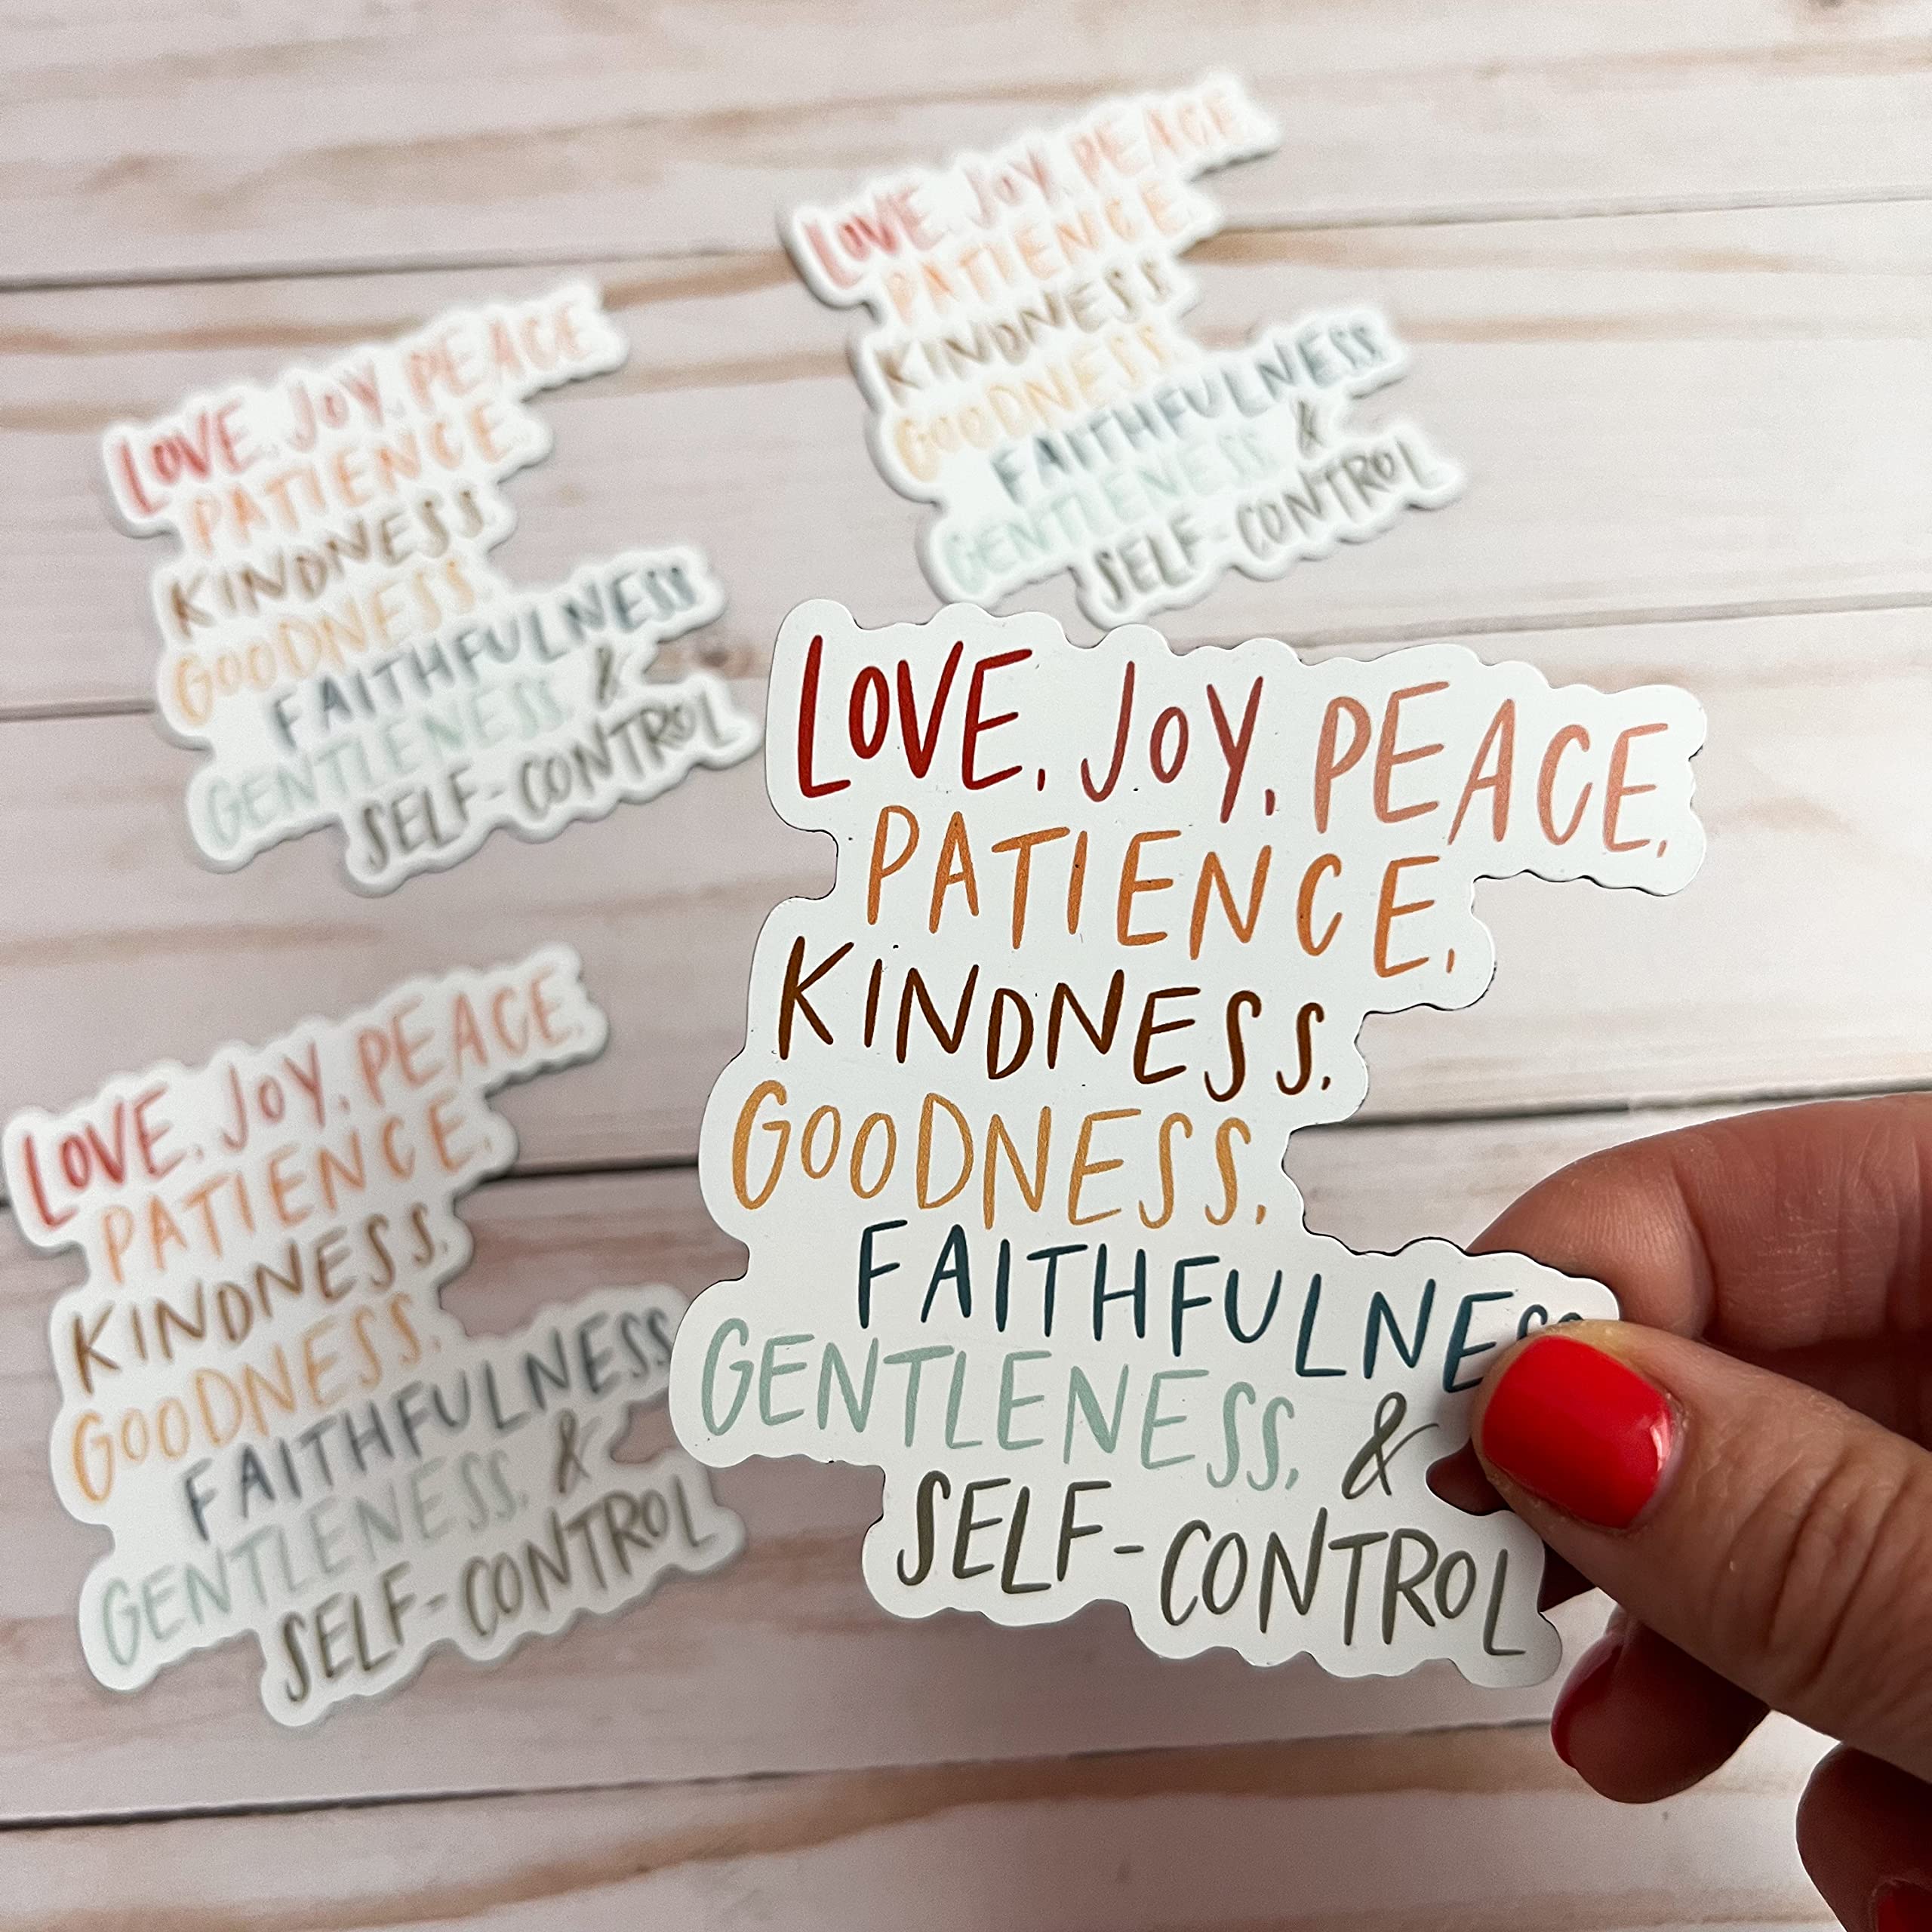 LOVE, JOY, PEACE,
PATIENCE,
KINDNESS,
GOODNESS,
FAITHFULNESS
GENTLENESS, &
SELF-CONTROL
LOVE, JOY, PEACE,
PATIENCE,
KINDNESS,
GOODNESS,
FAITHFULNESS,
GENTLENESS, &
SELF-CONTROL
LOVE, JOY, PEACE,
PATIENCE,
KINDNESS,
GOODNESS,
FAITHFULNESS,
GENTLENESS, &
SELF-CONTROL
LOVE, JOY, PEACE,
PATIENCE,
KINDNESS,
GOODNESS,
FAITHFULNESS
GENTLENESS, &
SELF-CONTROL